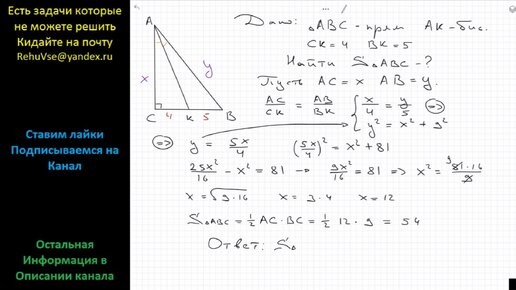 Есть задачи которые
не можете решить
Кидайте на почту
RehuVse@yandex.ru
Ставим лайки
Подписываемся на
Канал
Остальная
Информация в
Описании канала
A
x
y
C 4 K 5 B
Дано: △ABC - прям AK - бис.
CK = 4 BK = 5
Найти S△ABC - ?
Пусть AC = x AB = y.
AC/CK = AB/BK { x/4 = y/5 =>
y² = x² + 9²
=> y = 5x/4 (5x/4)² = x² + 81
25x²/16 - x² = 81 → 9x²/16 = 81 => x² = 81·16/9
x = √9·16 x = 3·4 x = 12
S△ABC = 1/2 AC·BC = 1/2 12·9 = 54
Ответ: S△